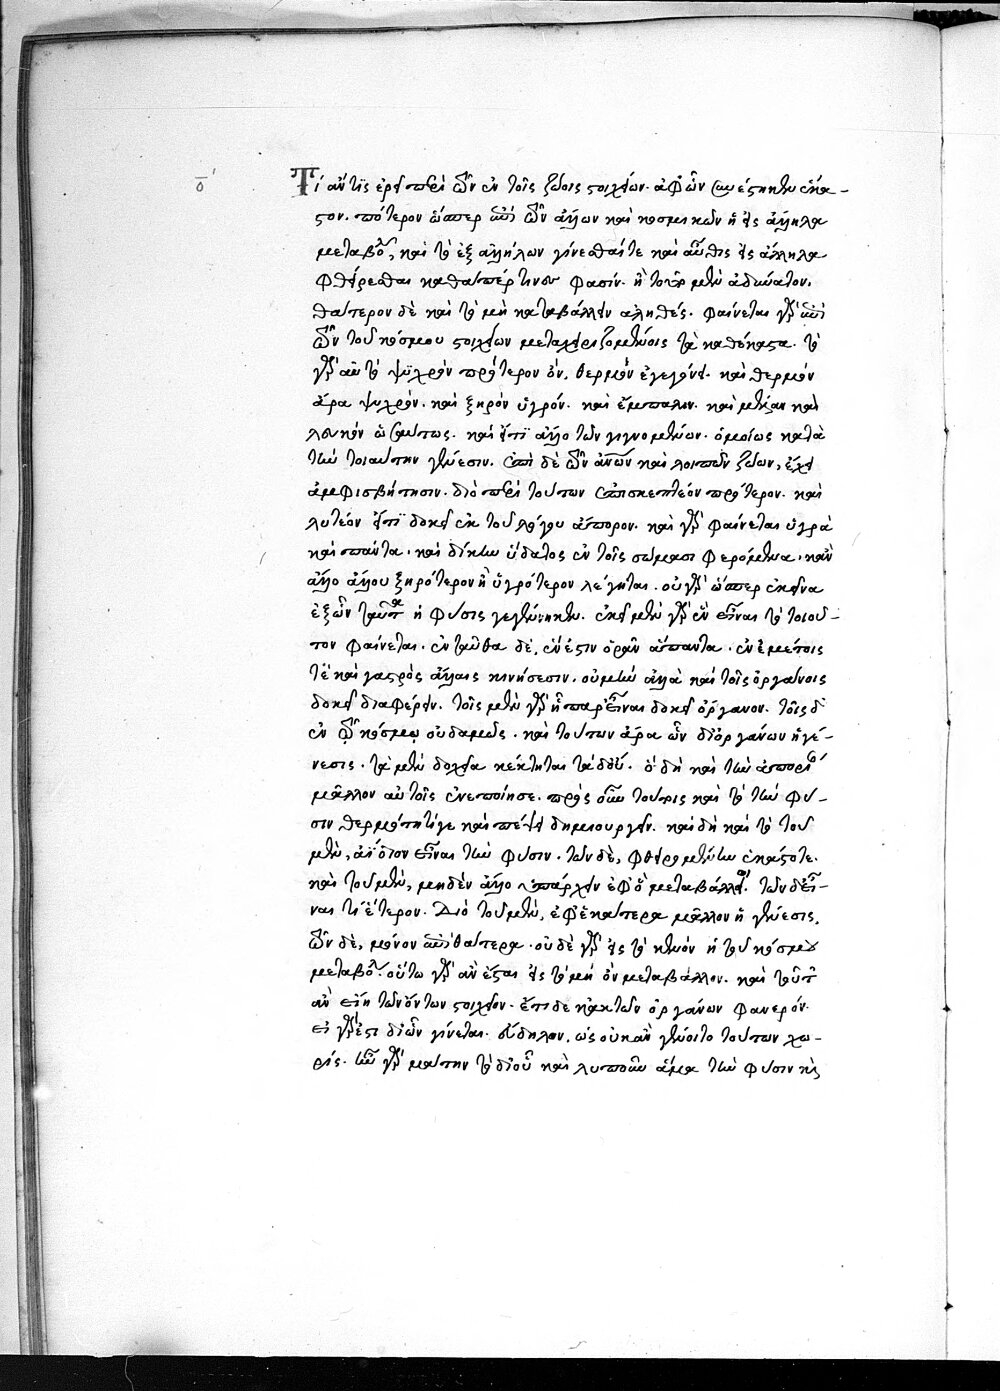 ο΄
Τί ἄν τις ἐρεῖ περὶ τῶν ἐν τοῖς ζώοις στοιχείων. ἀφ' ὧν συνέστηκεν ἕκα-
στον. πότερον ὥσπερ ἐπὶ τῶν ἄλλων καὶ κοσμικῶν ἢ εἰς ἄλληλα
μεταβολ, καὶ τὸ ἐξ ἀλλήλων γίνεσθαί τε καὶ αὖθις εἰς ἄλληλα
φθείρεσθαι καθάπερ τινές φασίν. ἢ τοῦτο μὲν ἀδύνατον.
θάτερον δὲ καὶ τὸ μὴ καταβάλλειν ἀληθές. φαίνεται γὰρ ἐπὶ
τῶν τοῦ κόσμου στοιχείων μεταχειριζομένοις τὰ καθέκαστα. τὸ
γὰρ αὖ τὸ ψυχρὸν πρότερον ὄν, θερμὸν ἐγεγόνει. καὶ θερμὸν
ἄρα ψυχρόν. καὶ ξηρὸν ὑγρόν. καὶ ἔμπαλιν. καὶ μέλαν καὶ
λευκόν ὡσαύτως. καὶ εἴ τι ἄλλο τῶν γιγνομένων. ὁμοίως κατὰ
τὴν τοιαύτην γένεσιν. ἐπὶ δὲ τῶν ἀνων καὶ λοιπῶν ζώων, ἔχει
ἀμφισβήτησιν. διὸ περὶ τούτων ἐπισκεπτέον πρότερον. καὶ
λυτέον εἴ τι δοκεῖ ἐκ τοῦ λόγου ἄπορον. καὶ γὰρ φαίνεται ὑγρὰ
καὶ πάντα. καὶ δίκην ὕδατος ἐν τοῖς σώμασι φερόμενα. κἂν
ἄλλο ἄλλου ξηρότερον ἢ ὑγρότερον λέγηται. οὐ γὰρ ὥσπερ ἐκεῖνα
ἐξ ὧν ταῦτα ἡ φύσις γεγέννηκεν. ἐκεῖ μὲν γὰρ ἓν εἶναι τὸ τοιοῦ-
τον φαίνεται. ἐνταῦθα δὲ, ἔνεστιν ὁρᾶν ἅπαντα. ἐν ἐμέτοις
τὲ καὶ γαστρὸς ἄλλαις κινήσεσιν. οὐ μὴν ἀλλὰ καὶ τοῖς ὀργάνοις
δοκεῖ διαφέρειν. τοῖς μὲν γὰρ ἢ παρεῖναι δοκεῖ ὄργανον. τοῖς δ'
ἐν τῷ κόσμῳ οὐδαμῶς. καὶ τούτων ἄρα ὧν δι' ὀργάνων ἡ γέ-
νεσις. τὰ μὲν δοχεῖα κέκτηται τὰ δ' οὔ. ὃ δὴ καὶ τὴν ἀπορίαν
μᾶλλον αὐτοῖς ἐνεποίησε. πρὸς οὖν τούτοις καὶ τὸ τὴν φύ-
σιν θερμότητί γε καὶ πέψει δημιουργεῖν. καὶ δὴ καὶ τὸ τοῦ
μὲν, ἀΐδιον εἶναι τὴν φύσιν. τῶν δὲ, φθειρομένην ἑκάστοτε.
καὶ τοῦ μὲν, μηδὲν ἄλλο ὑπάρχειν ἐφ' ὃ μεταβάλλει. τῶν δ' εἶ-
ναι τὶ ἕτερον. Διὸ τοῦ μὲν, ἐφ' ἑκάτερα μᾶλλον ἡ γένεσις,
τῶν δὲ, μόνον ἐπὶ θάτερα. οὐδὲ γὰρ εἰς τὸ κενὸν ἡ τοῦ κόσμου
μεταβολ. οὕτω γὰρ ἂν ἔσται εἰς τὸ μὴ ὂν μεταβάλλον. καὶ τοῦτ
ἂν εἴη τῶν ὄντων στοιχεῖον. ἔτι δὲ κἀκ τῶν ὀργάνων φανερόν.
εἰ γάρ ἐστι δι' ὧν γίνεται. εὔδηλον, ὡς οὐκ ἂν γένοιτο τούτων χω-
ρίς. ἦν γὰρ μάτην τὸ δι' οὗ καὶ λυποῦν ἅμα τὴν φύσιν εἰς